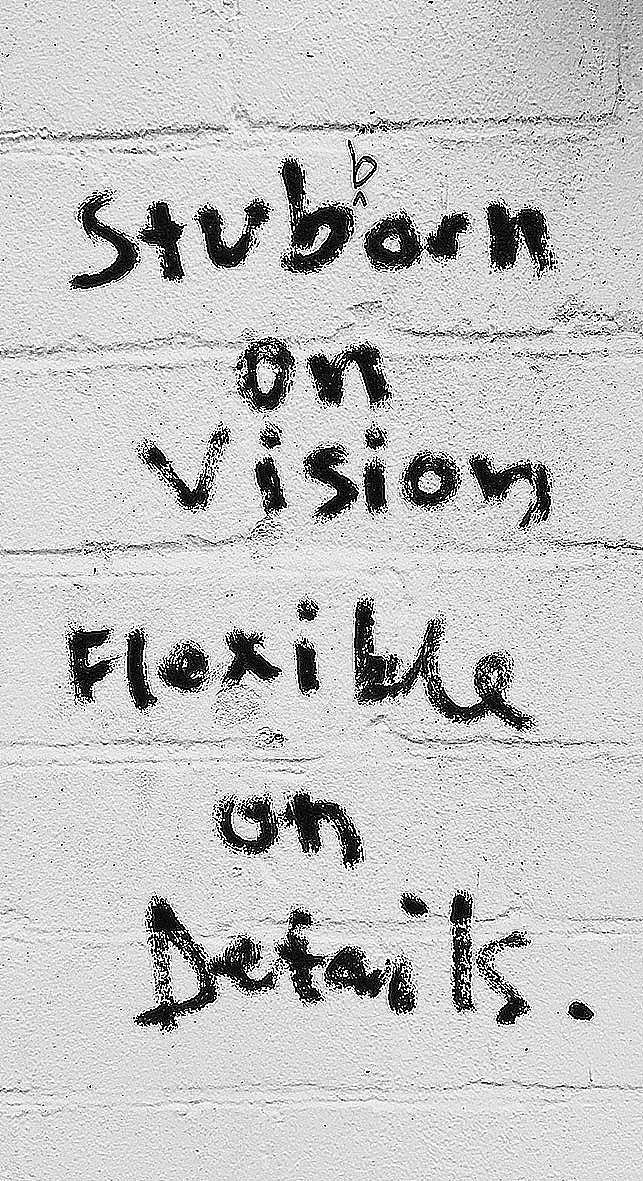 Stubborn
on
Vision
Flexible
on
Details.